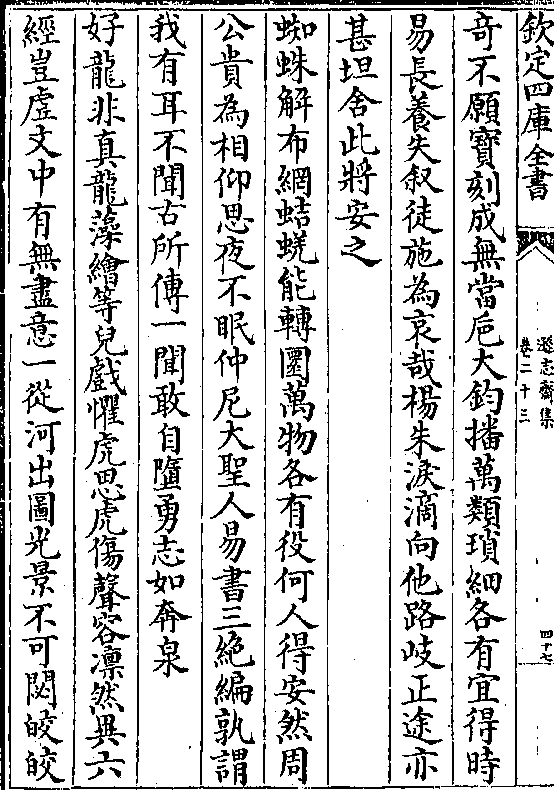 欽定四庫全書
遜志齋集
卷二十三
四十七
奇不願寶刻成無當巵大鈞播萬類瑣細各有宜得時
易長養失叙徒施為哀哉楊朱淚滴向他路岐正途亦
甚坦舍此將安之
蜘蛛解布網蛣蜣能轉圜萬物各有役何人得安然周
公貴為相仰思夜不眠仲尼大聖人易書三絶編孰謂
我有耳不聞古所傳一聞敢自墮勇志如奔泉
好龍非真龍藻繪等兒戲懼虎思虎傷聲容凛然異六
經豈虚文中有無盡意一從河出圖光景不可閟皎皎